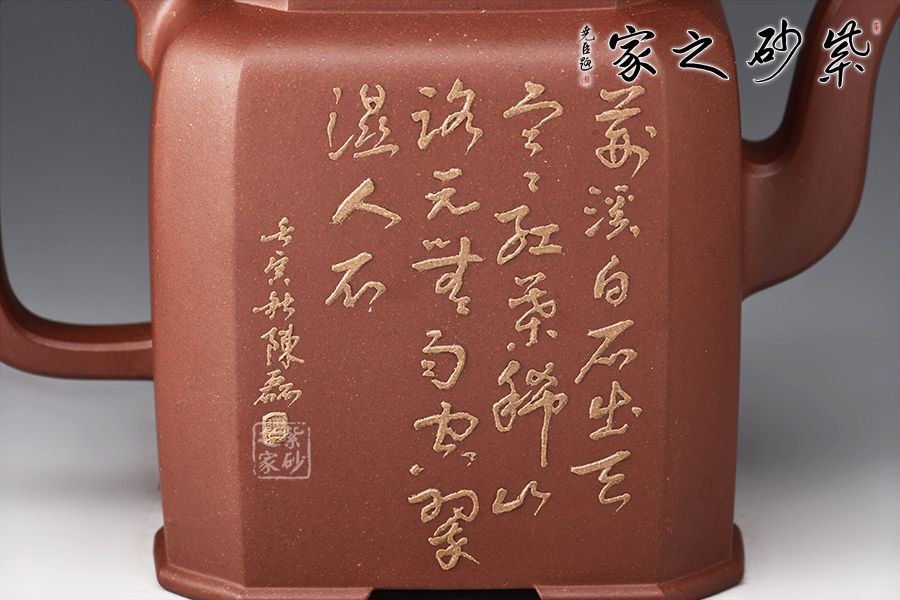 紫砂之家
堯臣題
荆溪白石出天
寒紅葉稀山
路元無雨空翠
湿人衣
壬寅秋陳磊
紫砂之家